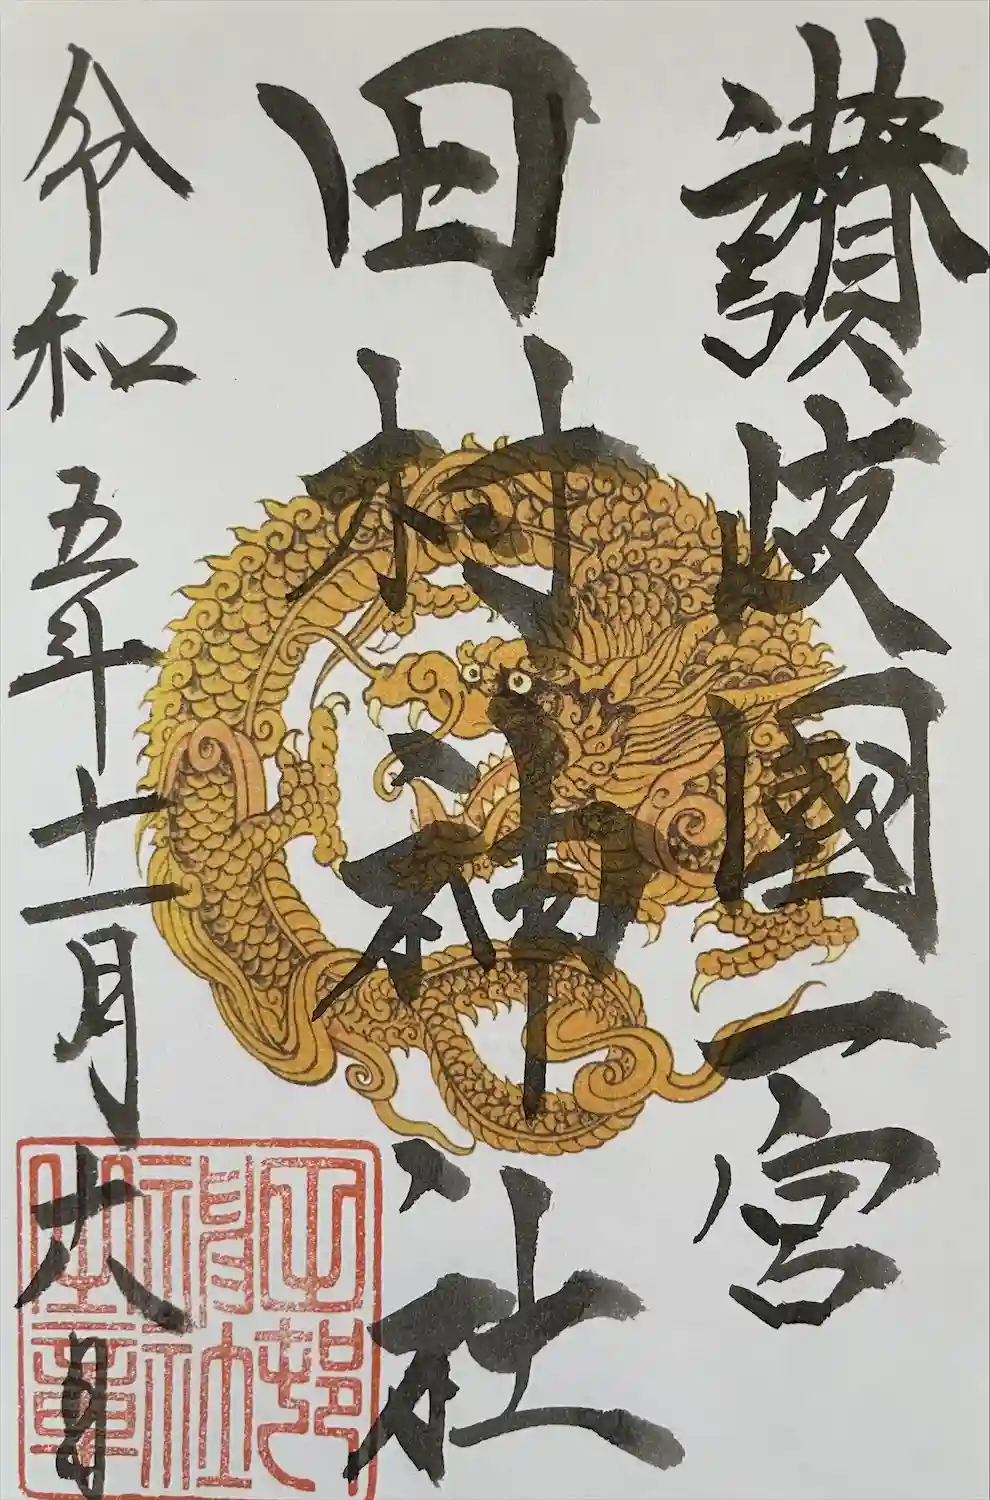 讃岐國一宮
田村神社
令和五年十一月六日
田邨
神社